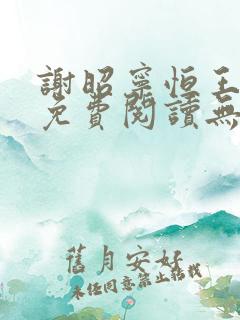 謝昭寧恒王
免費閱讀無
舊月安好
未经同意禁止转载